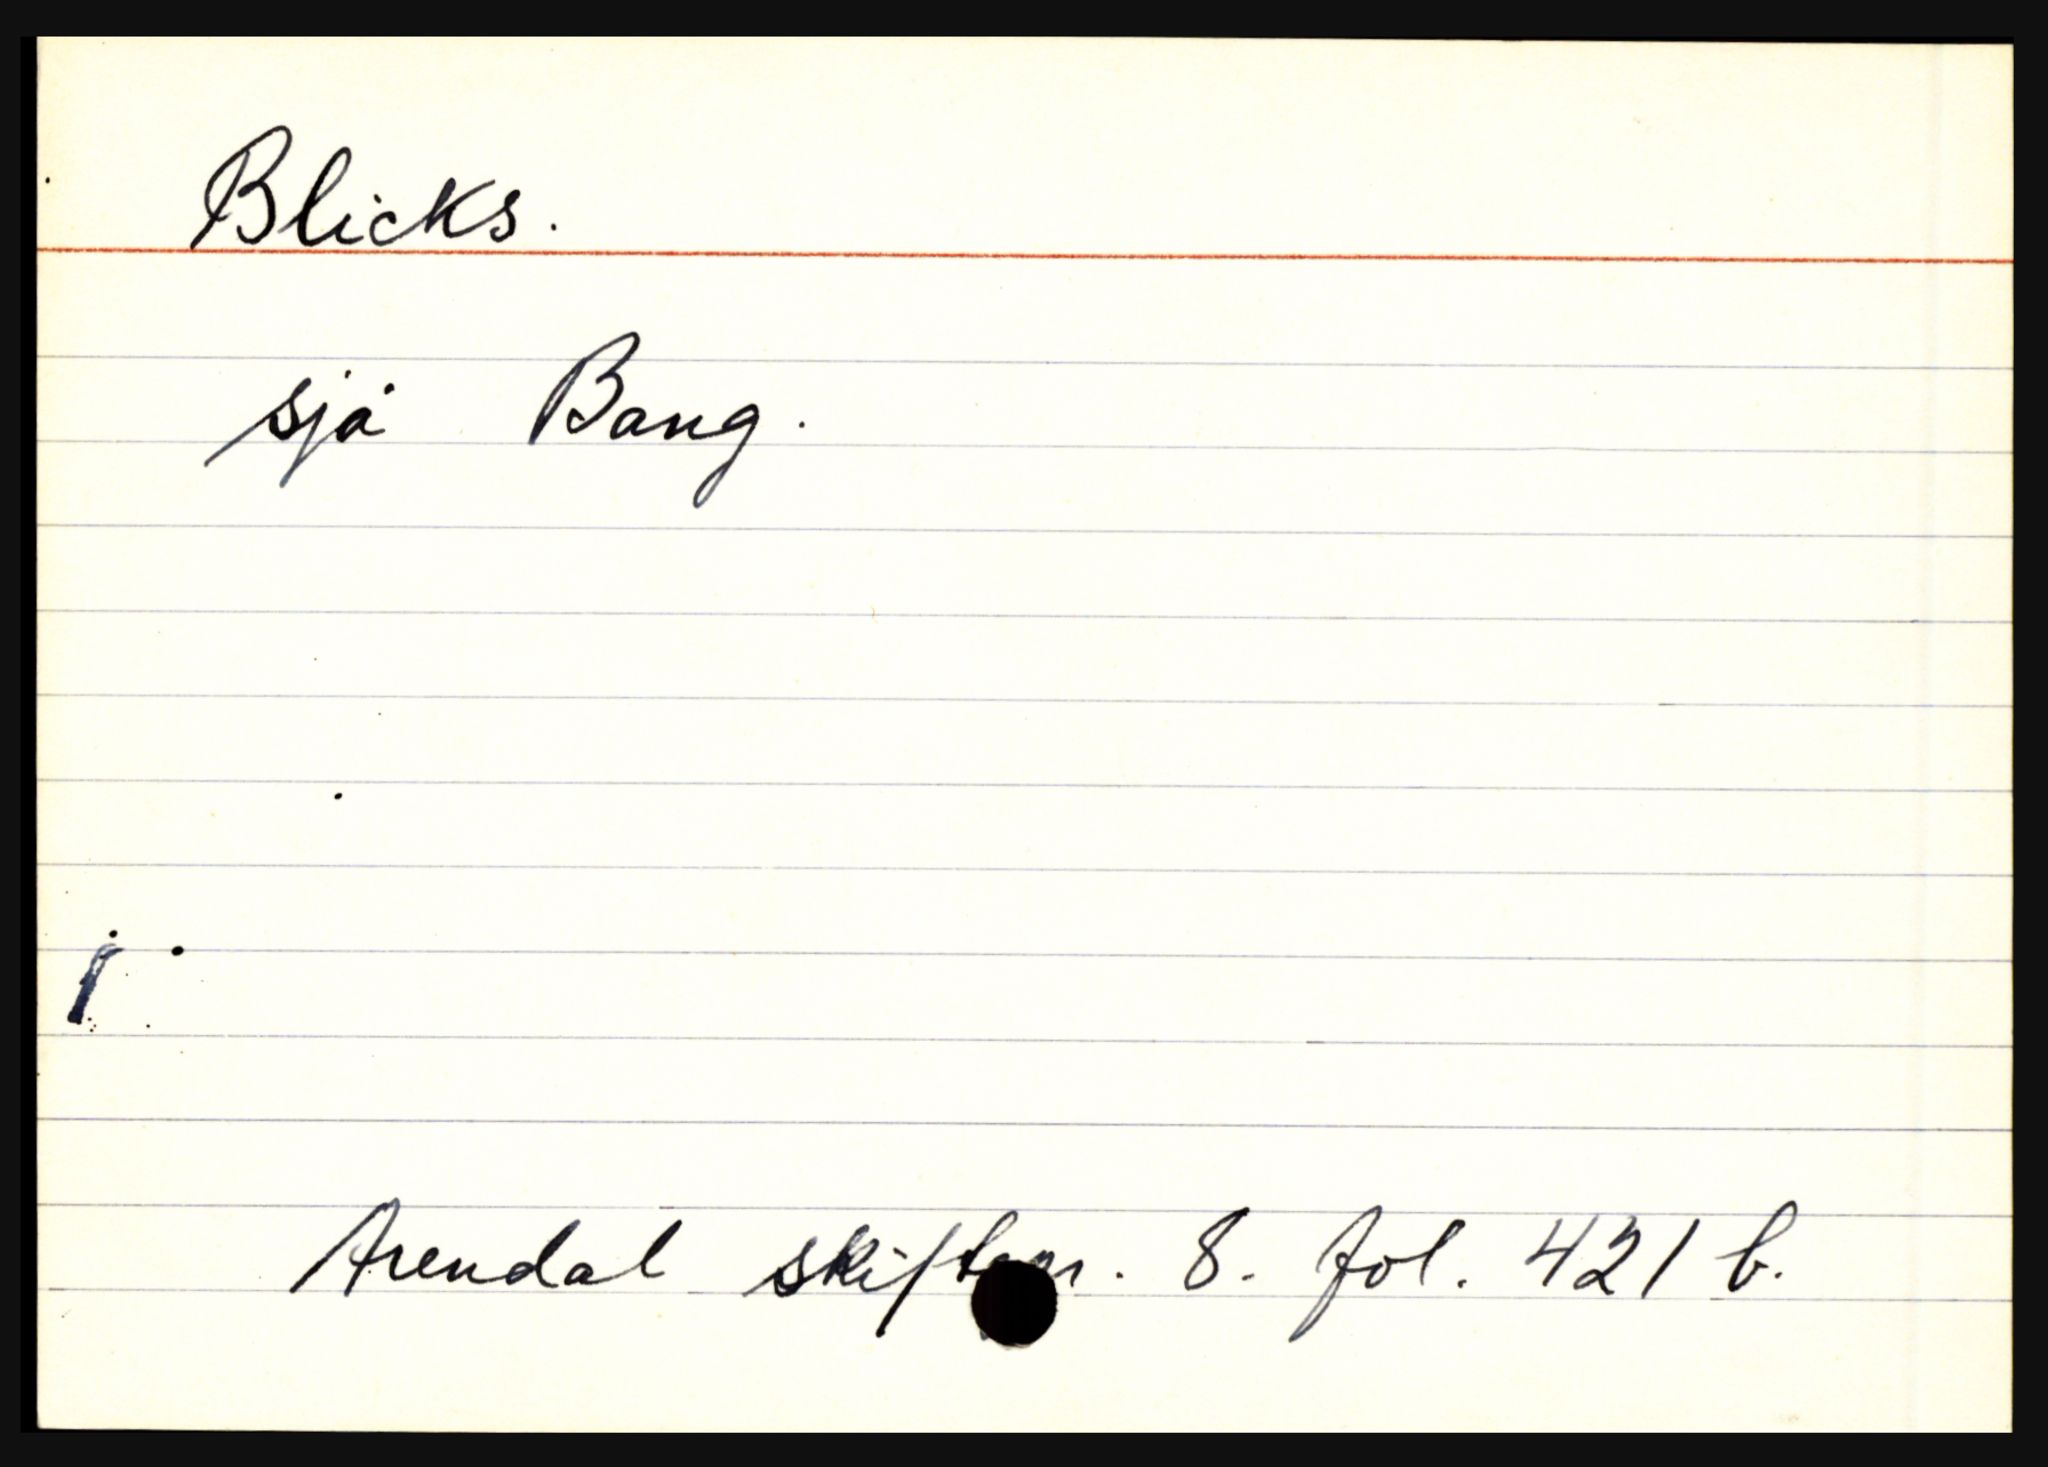 Blicks.
sjå Bang.
Arendal 8. fol. 421 b.